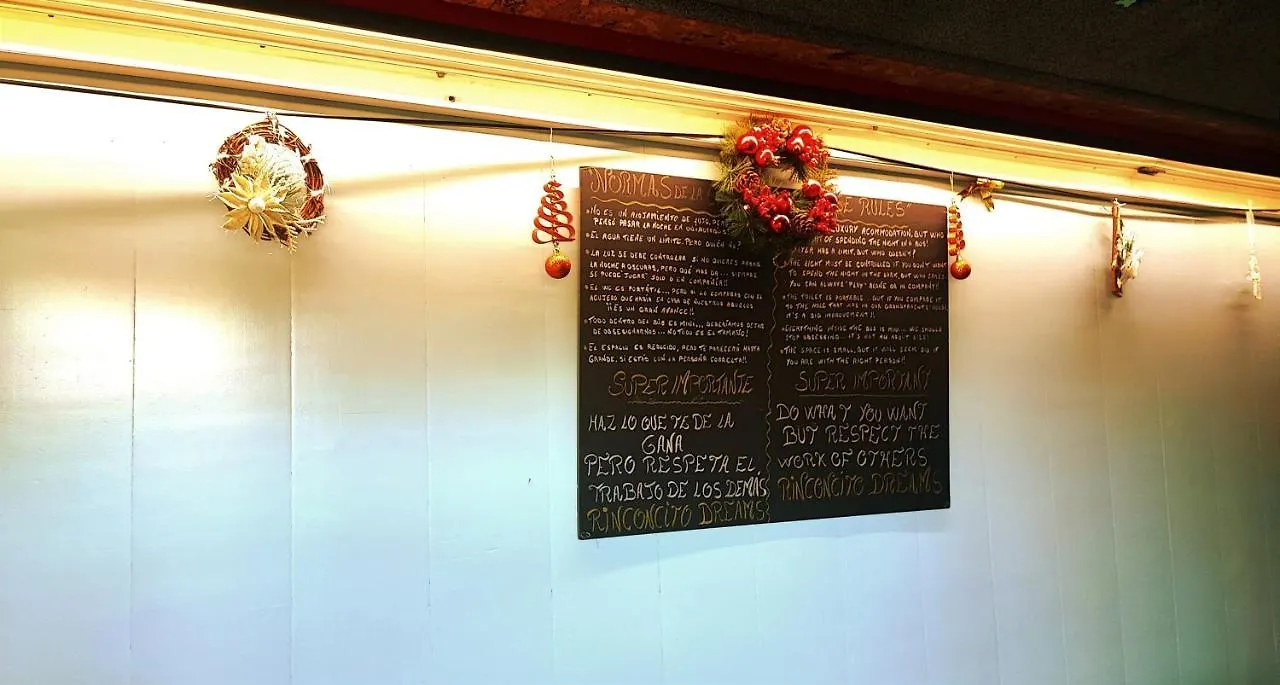 "NORMAS DE LA
*NO ES UN ALOJAMIENTO DE LUJO,
PASAR LA NOCHE EN
*EL AGUA TIENE UN LIMITE, PERO QUIÉN
*LA LUZ SE DEBE CONTROLAR SI NO QUIERES PASAR
LA NOCHE A OSCURAS, PERO QUE MAS DA... SIEMPRE
SE PUEDE "JUGAR" SOLO O EN COMPAÑIA!!
*EL WC ES PORTÁTIL... PERO SI LO COMPARAS CON EL
AGUJERO QUE HABIA EN CASA DE NUESTROS ABUELOS
¡¡ES UN GRAN AVANCE!!
*TODO DENTRO DEL BUS ES MINI... DEBERÍAMOS DEJAR
DE OBSESIONARNOS... NO TODO ES EL TAMAÑO!
*EL ESPACIO ES REDUCIDO, PERO TE PARECERÁ HASTA
GRANDE, SI ESTÁS CON LA PERSONA CORRECTA!!
SUPER IMPORTANTE
HAZ LO QUE TE DE LA
GANA
PERO RESPETA EL
TRABAJO DE LOS DEMÁS
RINCONCITO DREAMS
SE RULES"
LUXURY ACOMMODATION, BUT WHO
OF SPENDING THE NIGHT IN A BUS!
HAS A LIMIT, BUT WHO DOESN'T!
*THE LIGHT MUST BE CONTROLLED IF YOU DON'T WANT
TO SPEND THE NIGHT IN THE DARK, BUT WHO CARES
YOU CAN ALWAYS "PLAY" ALONE OR IN COMPANY!!
*THE TOILET IS PORTABLE... BUT IF YOU COMPARE IT
TO THE HOLE THAT WAS IN OUR GRANDPARENTS' HOUSE
IT'S A BIG IMPROVEMENT!!
*EVERYTHING INSIDE THE BUS IS MINI... WE SHOULD
STOP OBSESSING... IT'S NOT ALL ABOUT SIZE!
*THE SPACE IS SMALL, BUT IT WILL SEEM BIG IF
YOU ARE WITH THE RIGHT PERSON!!
SUPER IMPORTANT
DO WHAT YOU WANT
BUT RESPECT THE
WORK OF OTHERS
RINCONCITO DREAMS